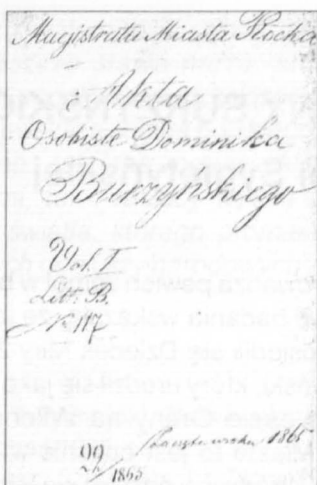 Magistratu Miasta Płocka
Akta
Osobiste Dominika
Burzynskiego
Vol. I
Litt. B.
№ 117
1865
1865